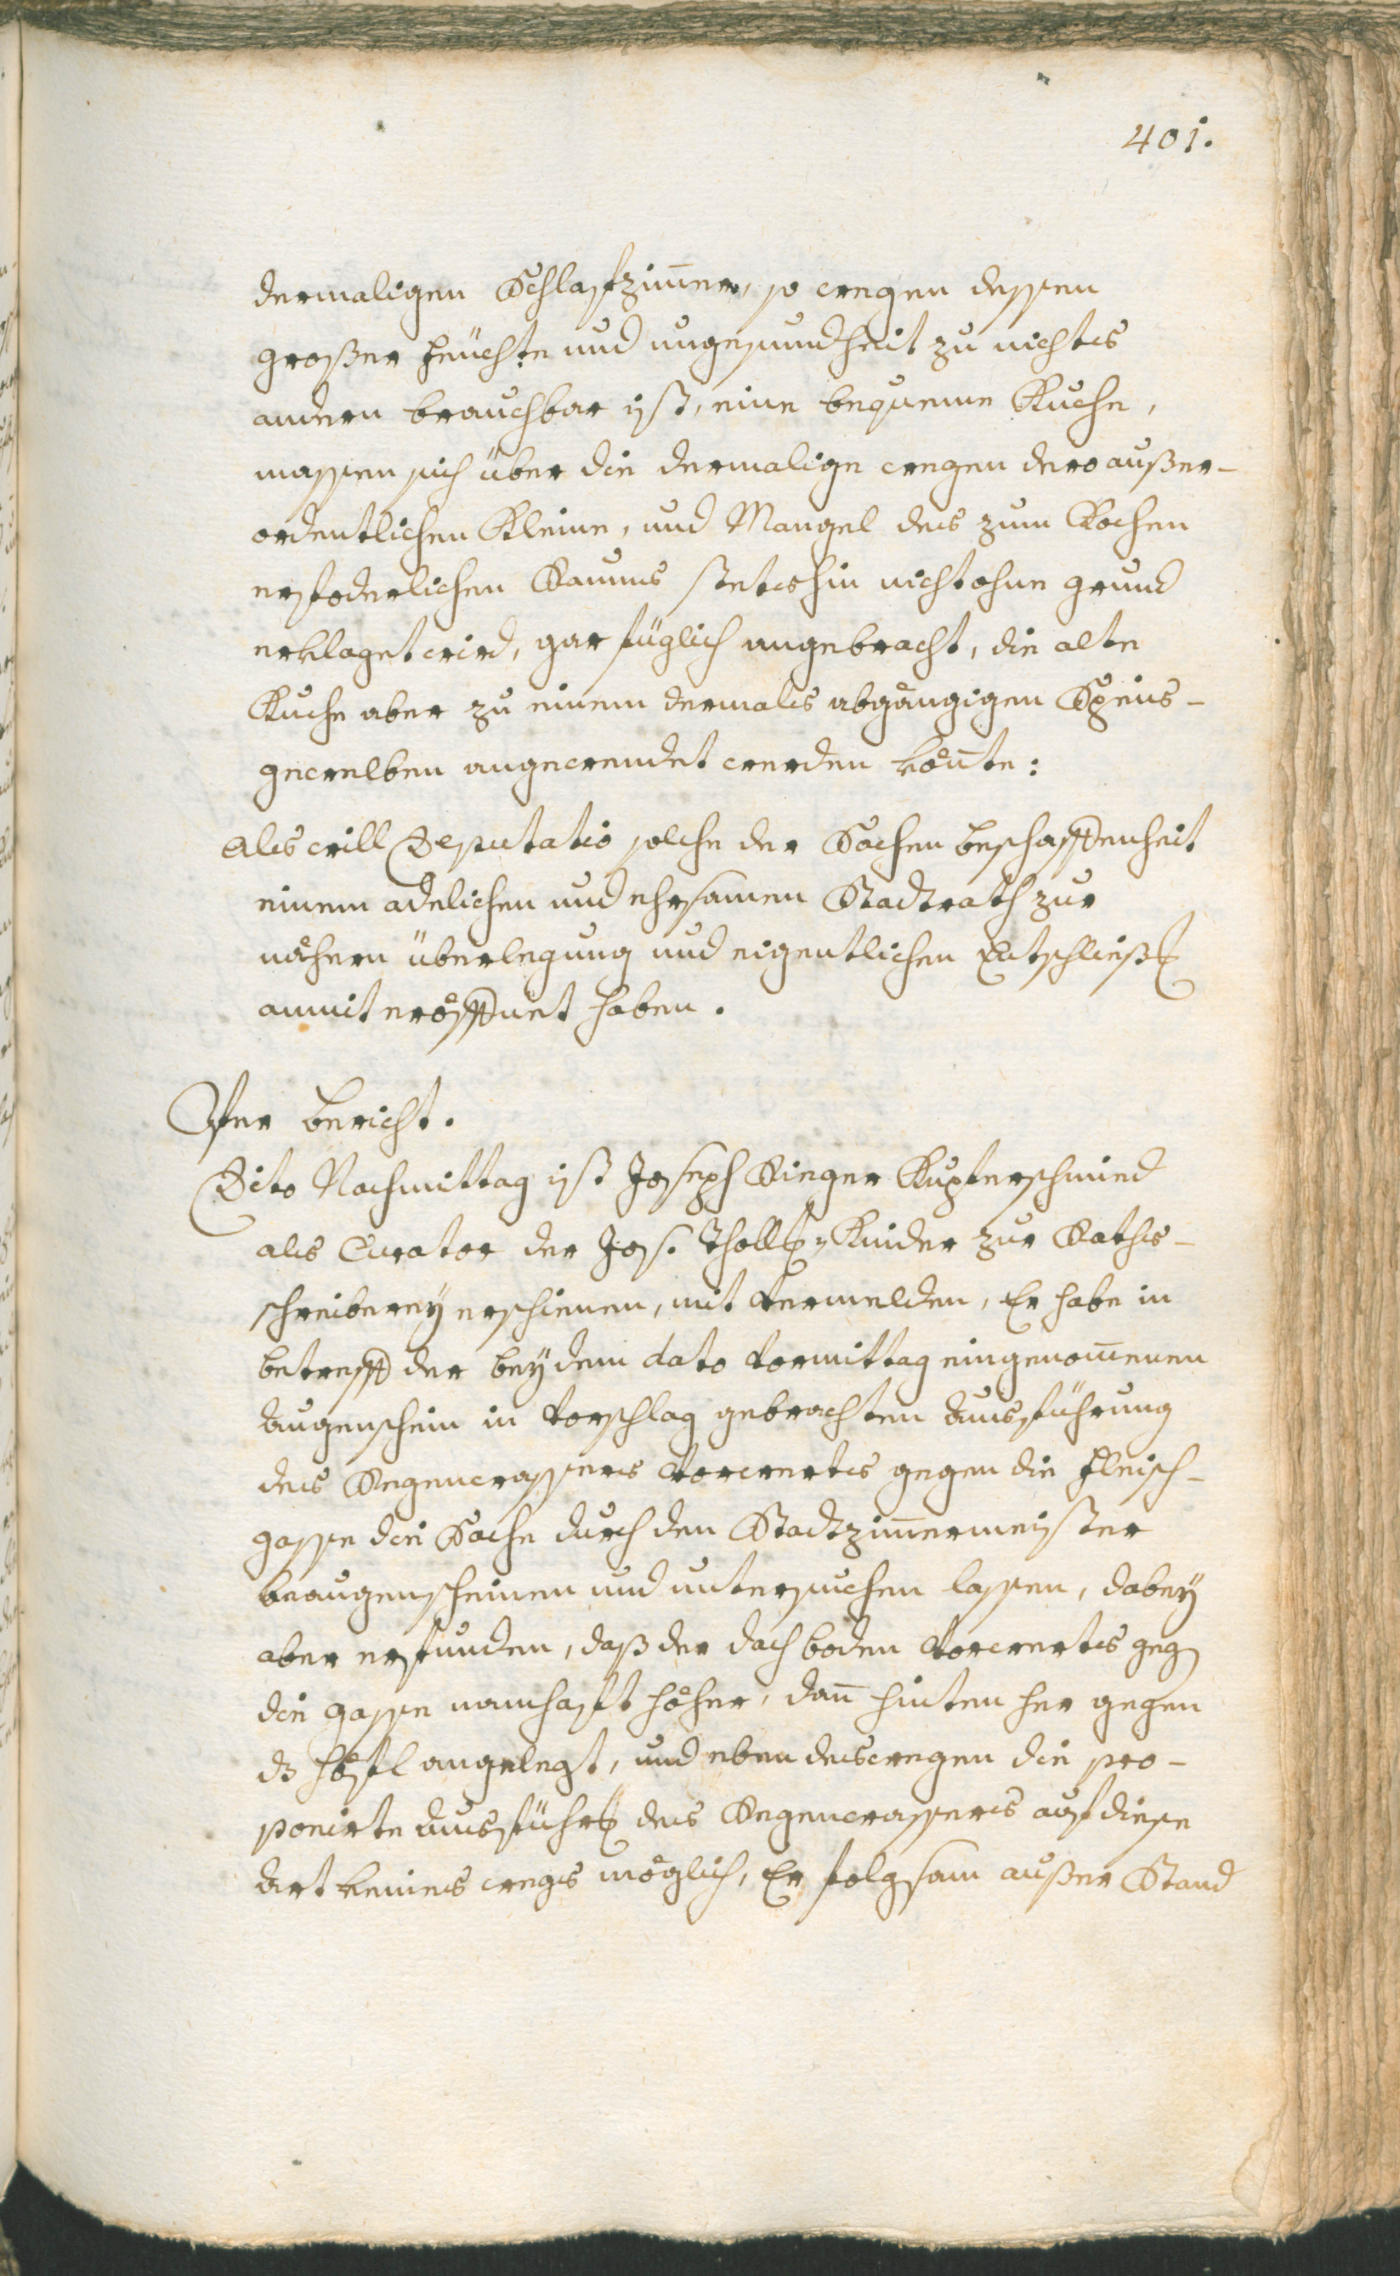 401.
dermaligen Schlafzim̅er, so wegen dessen
großer Feüchte und ungesundheit zu nichts
andern brauchbar ist, eine bequeme Kuche,
massen sich über die dermalige wegen dero außer-
ordentlichen Kleine, und Mangel des zum Kochen
erfoderlichen Raums stetshin nicht ohne grund
erklaget wird, gar füglich angebracht, die alte
Kuche aber zu einem dermals abgängigen Speis-
gewelben angewendet werden kön̅te:
Als will Deputatio solche der Sachen beschaffenheit
einem adelichen und ehrsamen Stadtrath zur
nähern überlegung und eigentlichen Entschließg
anmit eröffnet haben.
Ffter bericht.
Dito Nachmittag ist Joseph Singer Kupferschmied
als Curator der Jos. Kinder zur Raths-
schreiberey erschienen, mit vermelden, Er habe in
betreff der bey dem dato vormittag eingenom̅enen
augenschein in vorschlag gebrachten ausführung
des Regenwassers vorwerts gegen die Fleisch-
gasse die Sache durch den Stadtzim̅ermeister
beaugenscheinen und untersuchen lassen, dabey
aber erfunden, daß der dach boden vorwerts geg
die gasse namhaft höher, dan̅ hinten her gegen
dz höfl angelegt, und eben deswegen die pro-
ponirte ausführg des Regenwassers auf diese
art keines wegs möglich, Er folgsam außer Stand